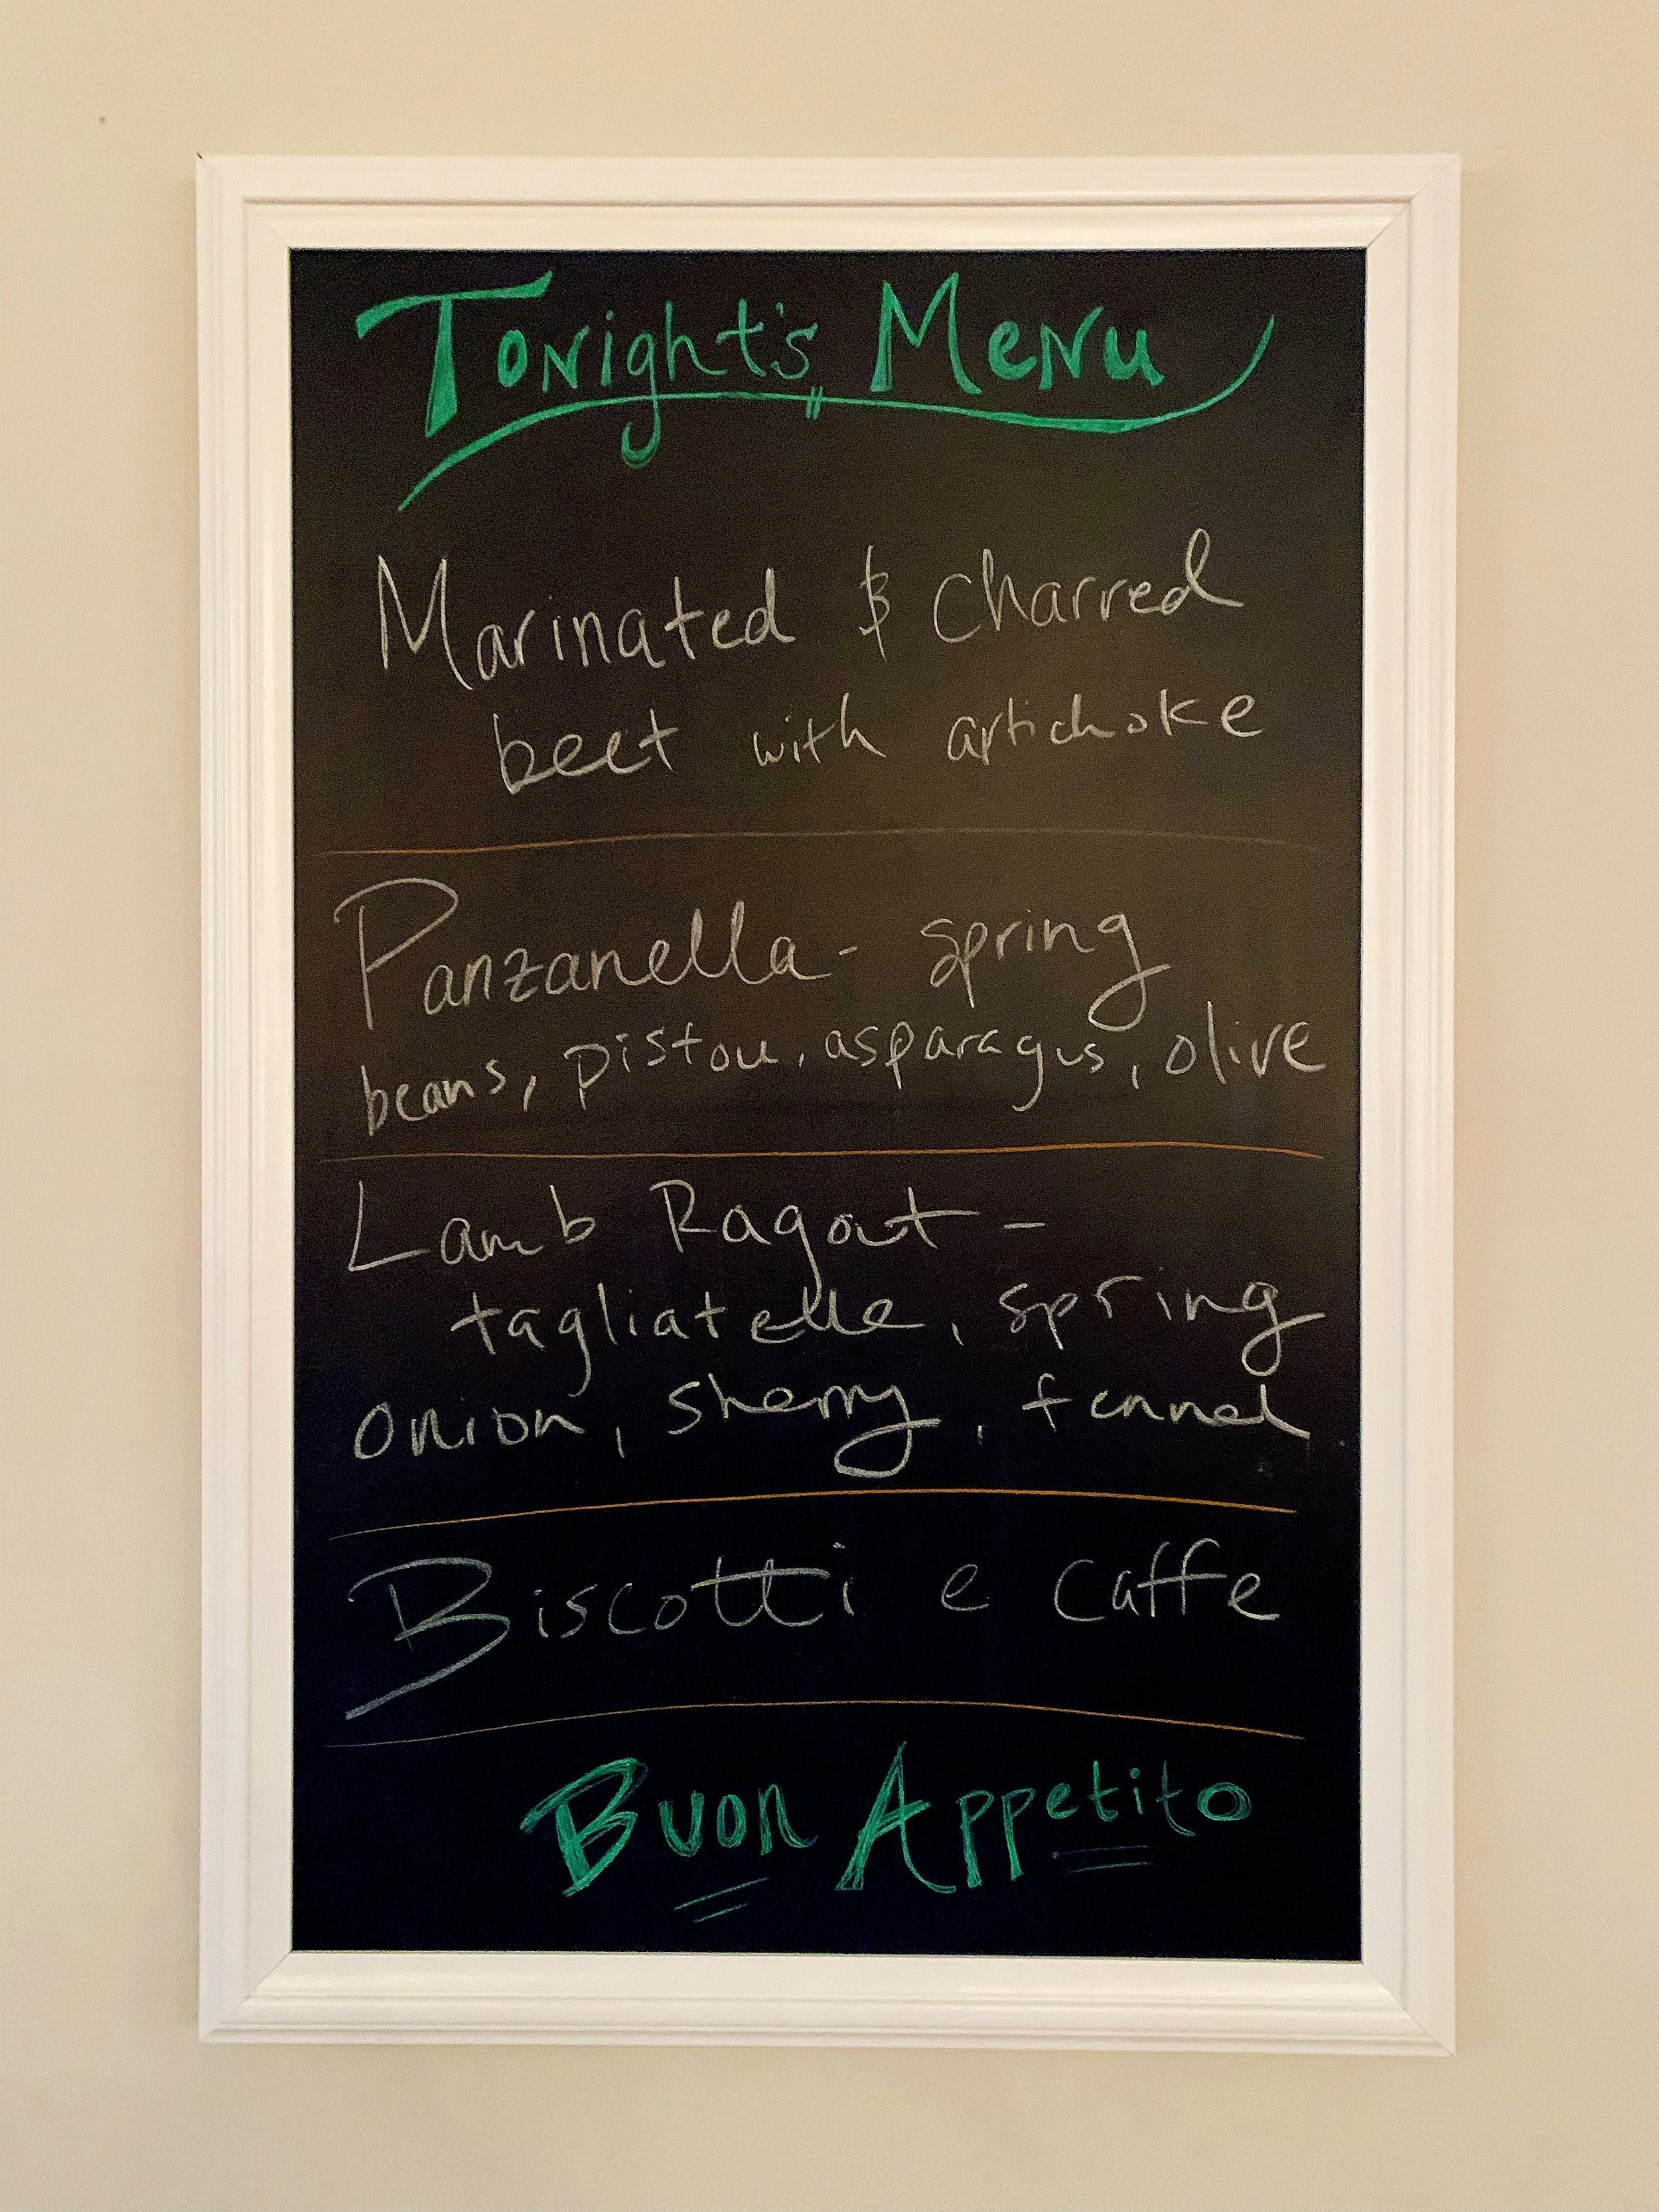 Tonight's Menu
Marinated & charred
beet with artichoke
Panzanella - spring
beans, pistou, asparagus, olive
Lamb Ragout -
tagliatelle, spring
onion, sherry, fennel
Biscotti e caffe
Buon Appetito